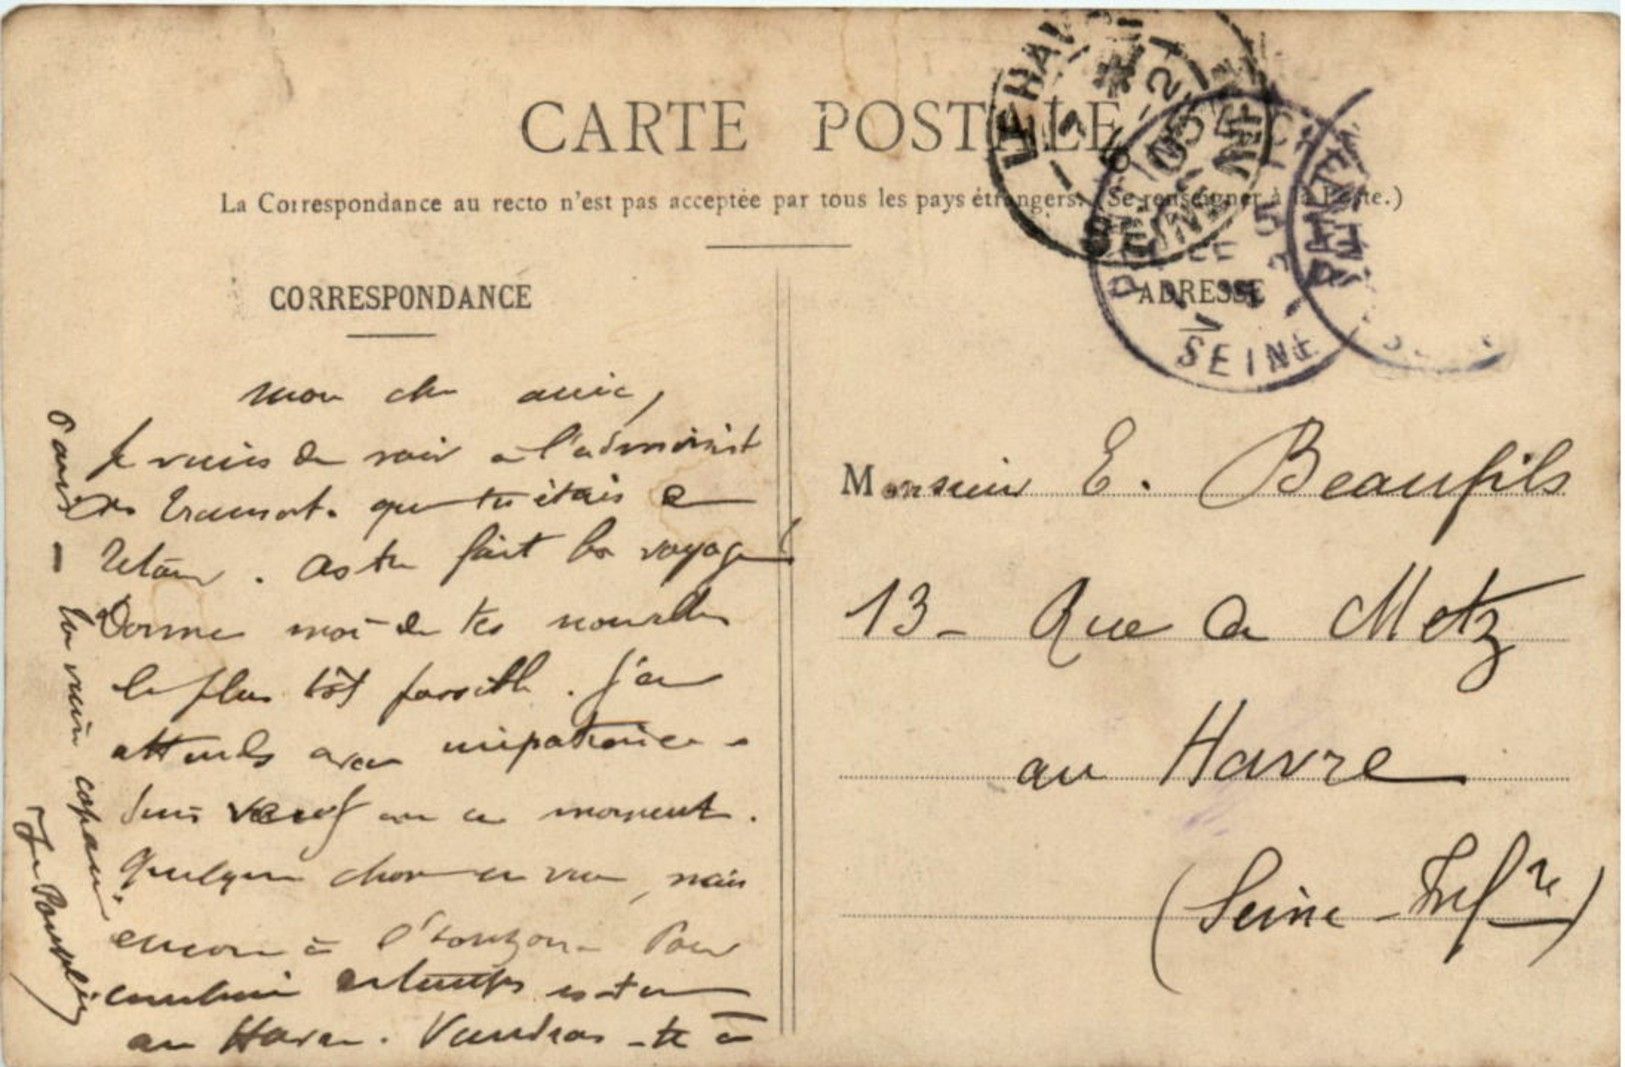 CARTE POSTALE
La Correspondance au recto n'est pas acceptée par tous les pays étrangers. (Se renseigner à la Poste.)
CORRESPONDANCE
ADRESSE
LE HAVRE
SEINE
Mon cher ami,
Je viens de voir à l'administ
des Transat. que tu étais de
retour. As tu fait bon voyage?
Donne moi de tes nouvelles
le plus tôt possible. J'en
attends avec impatience.
Suis veuf en ce moment.
Quelque chose en vue, mais
encore à l'horizon. Pour
combien de temps es-tu
au Havre. Viendras-tu à
Paris - Ton vieux copain
Monsieur E. Beaufils
13 - Rue de Metz
au Havre
(Seine-Infre)